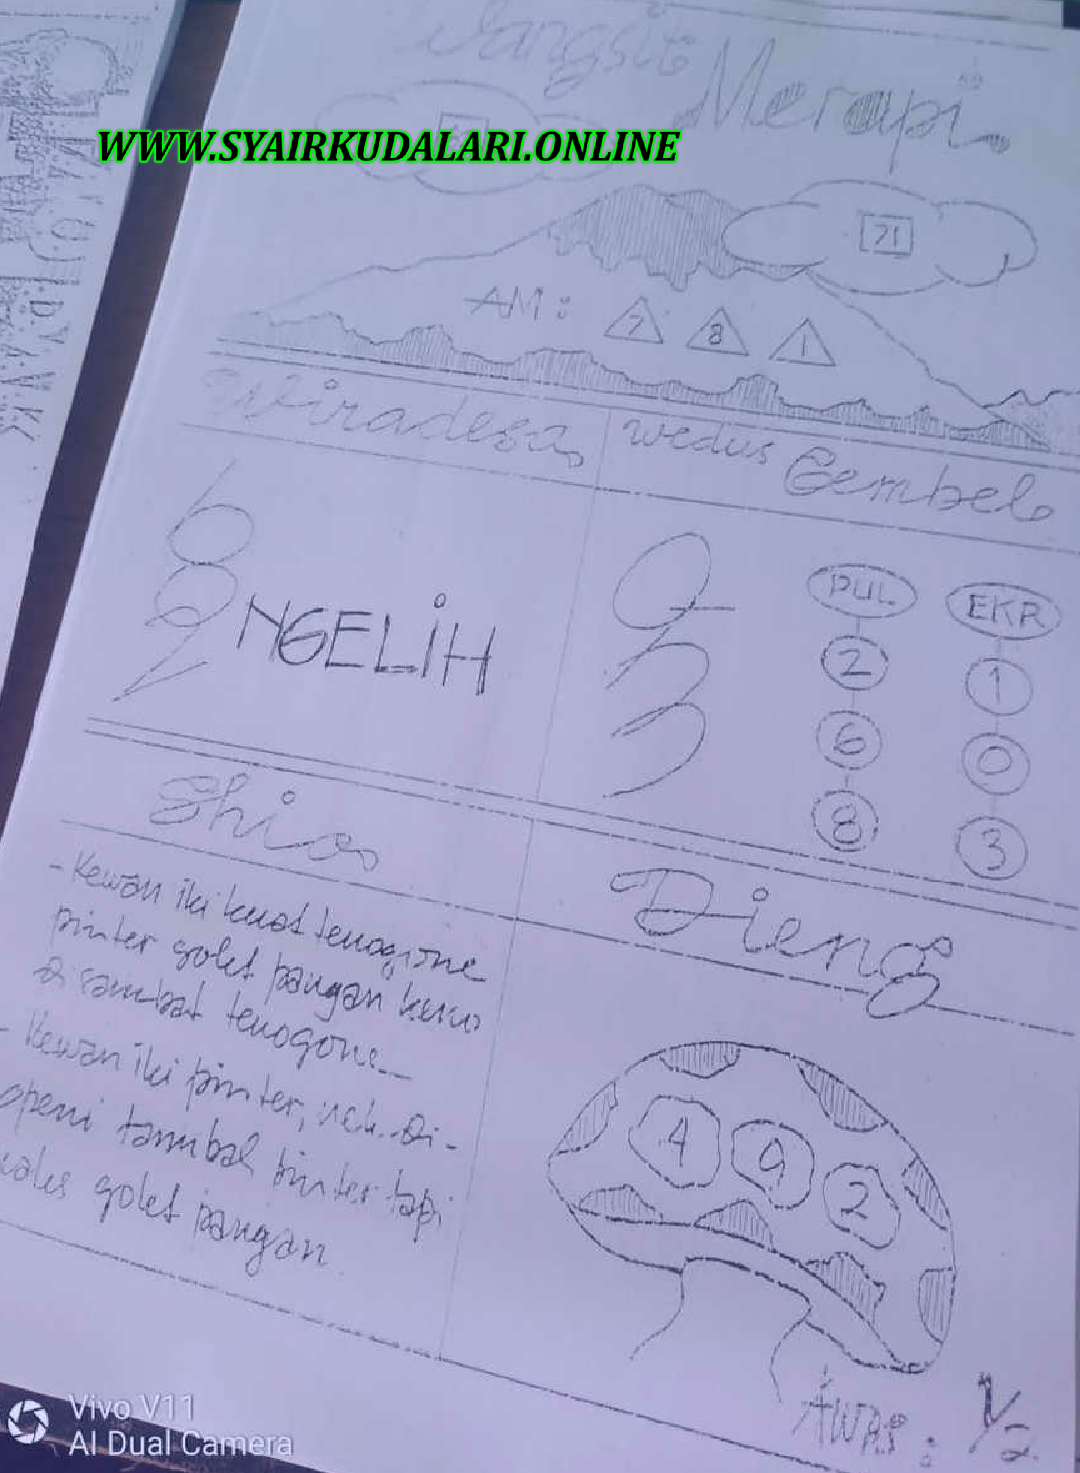 Wangsit Merapi
WWW.SYAIRKUDALARI.ONLINE
71
AM : 7 8 1
Wiradesa
6
8
2
NGELIH
wedus Gembel
0
3
3
PUL
2
6
8
EKR
1
0
3
Shio
- Kewan iki kuat tenogone
pinter golet pangan
di sambat tenogone
- Kewan iki pinter, nek di-
openi tambah pinter tapi
golet pangan.
Dieng
4 9 2
AWAS : 1/2
Vivo V11
AI Dual Camera